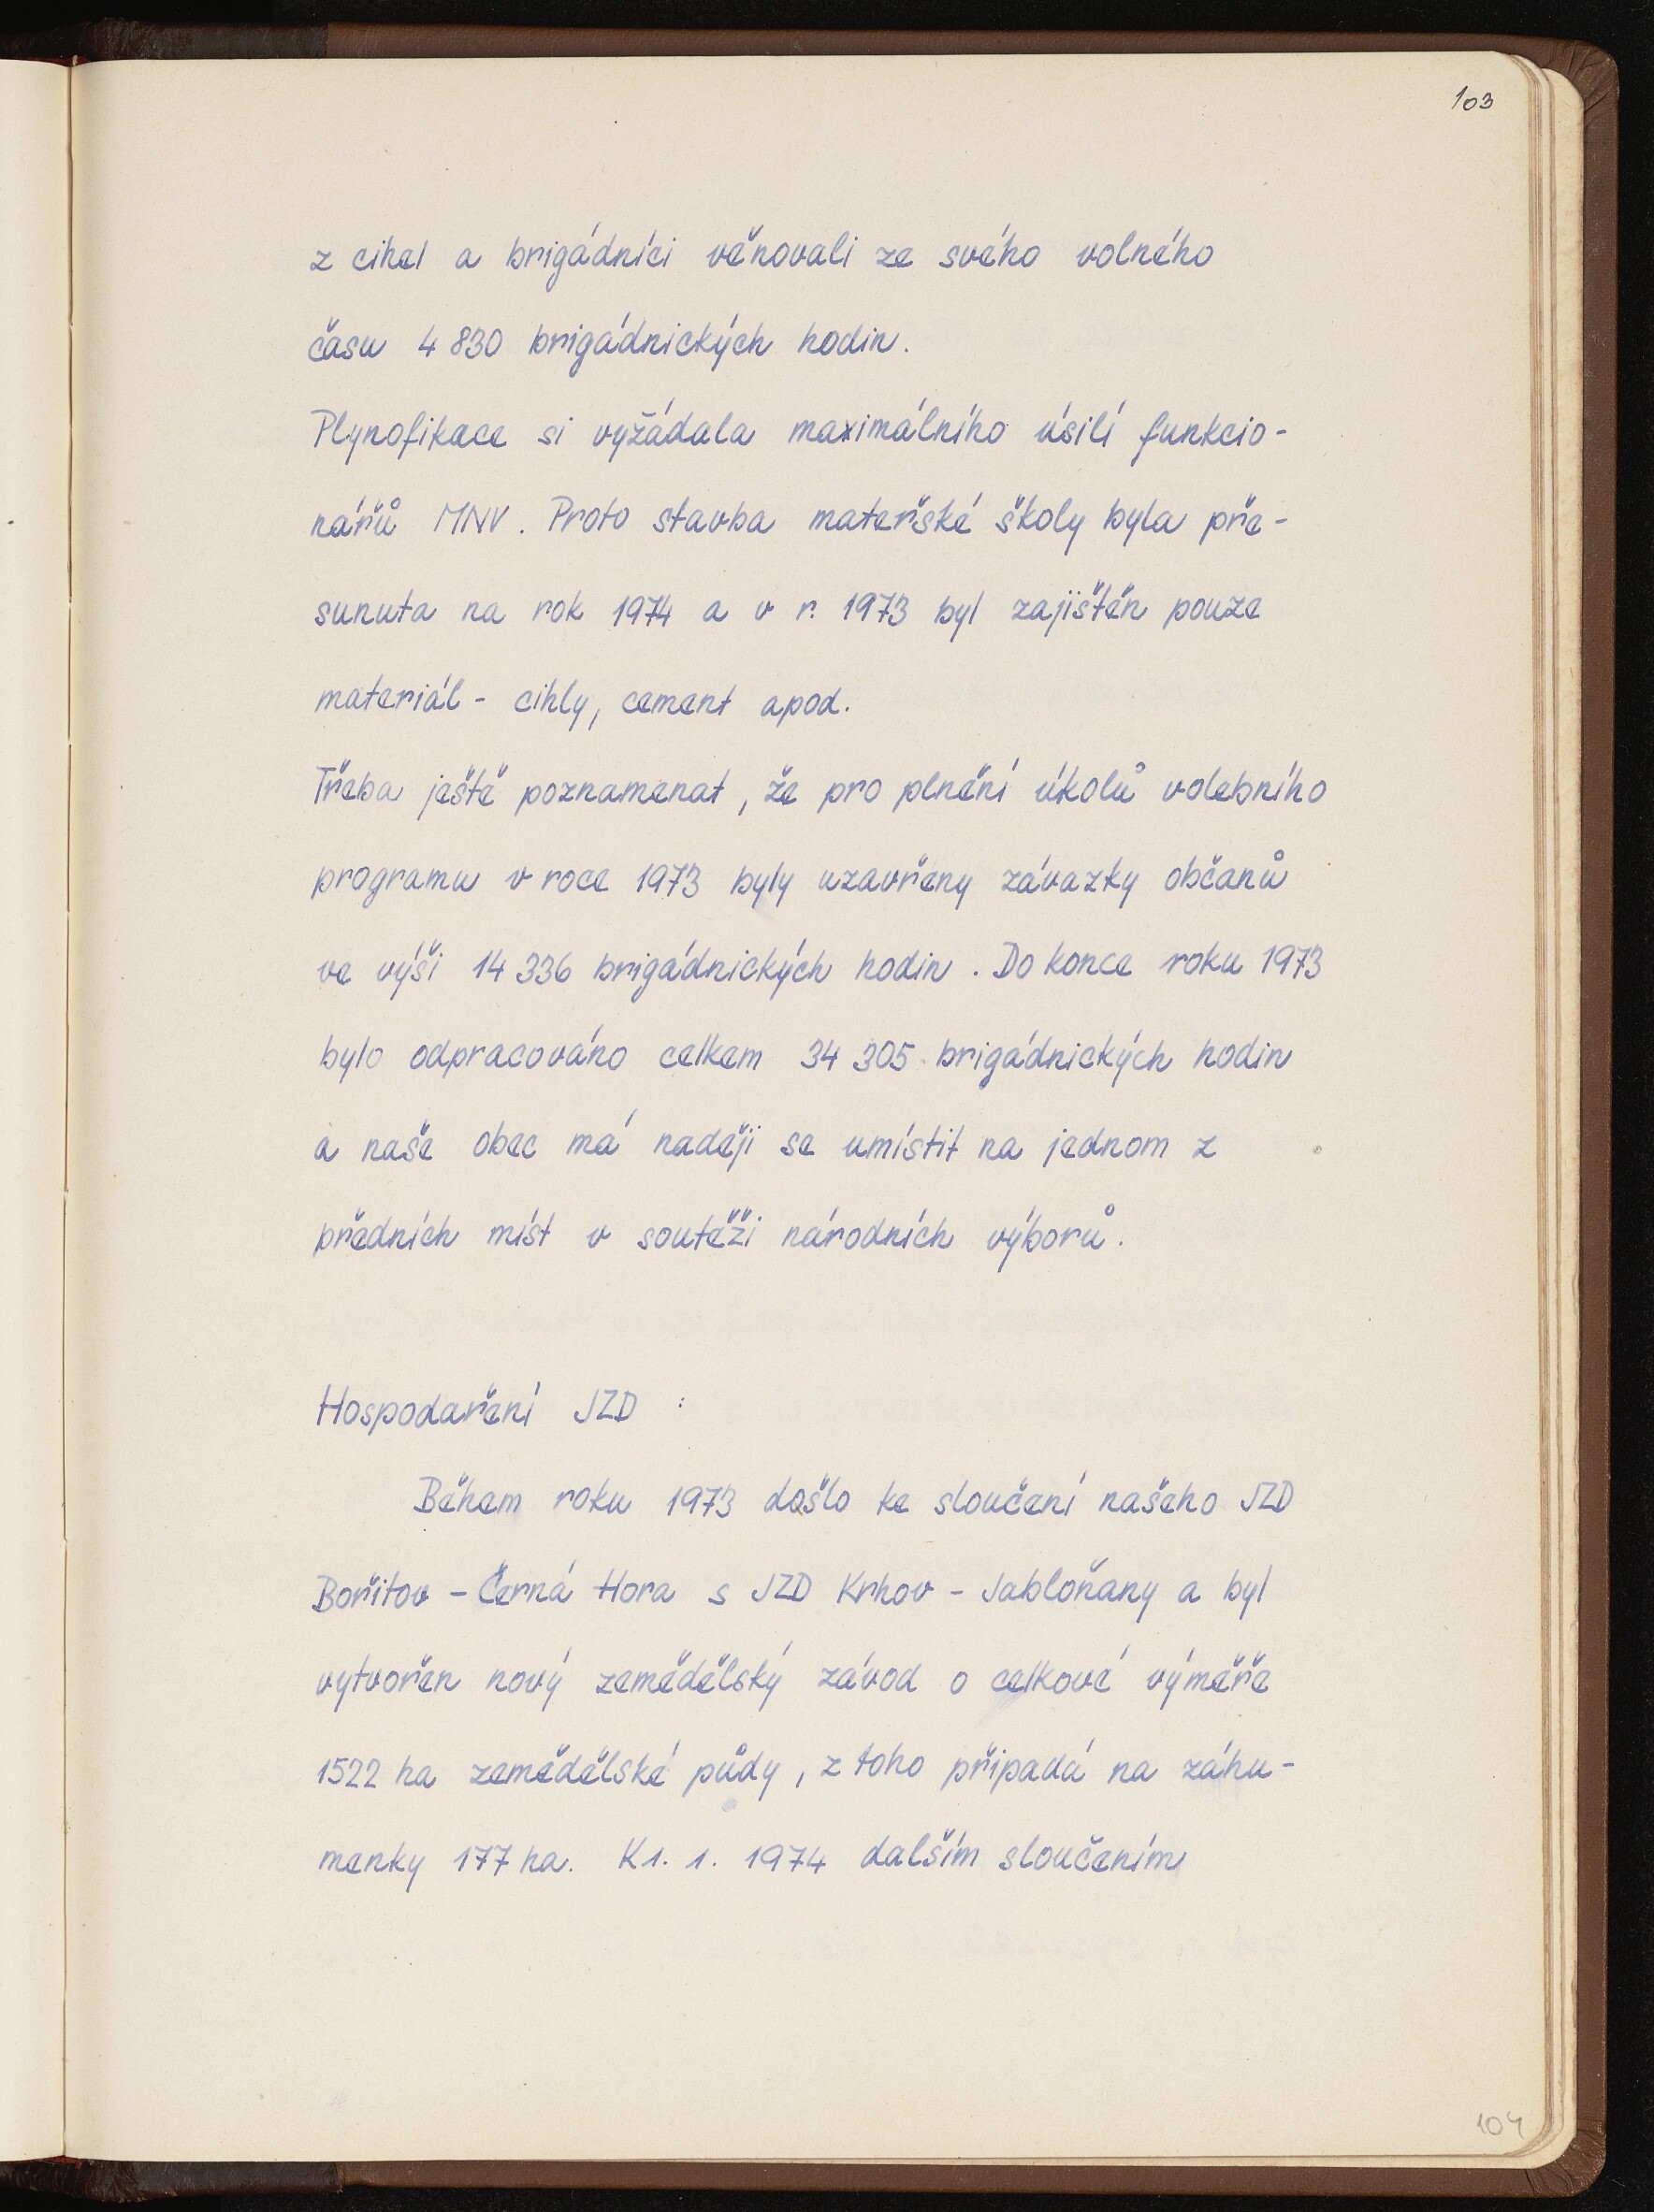 103
z cihel a brigádníci věnovali ze svého volného
času 4 830 brigádnických hodin.
Plynofikace si vyžádala maximálního úsilí funkcio-
nářů MNV. Proto stavba mateřské školy byla pře-
sunuta na rok 1974 a v r. 1973 byl zajištěn pouze
materiál - cihly, cement apod.
Třeba ještě poznamenat, že pro plnění úkolů volebního
programu v roce 1973 byly uzavřeny závazky občanů
ve výši 14 336 brigádnických hodin. Do konce roku 1973
bylo odpracováno celkem 34 305 brigádnických hodin
a naše obec má naději se umístit na jednom z
předních míst v soutěži národních výborů.
Hospodaření JZD :
Během roku 1973 došlo ke sloučení našeho JZD
Bořitov - Černá Hora s JZD Krhov - Jabloňany a byl
vytvořen nový zemědělský závod o celkové výměře
1522 ha zemědělské půdy, z toho připadá na záhu-
menky 177 ha. K 1. 1. 1974 dalším sloučením
104